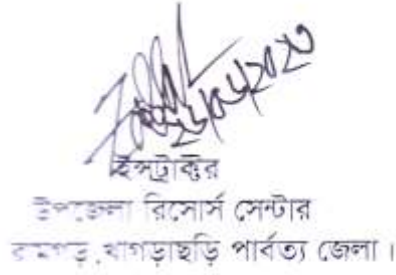 ইন্সট্রাক্টর
উপজেলা রিসোর্স সেন্টার
রামগড়,খাগড়াছড়ি পার্বত্য জেলা।